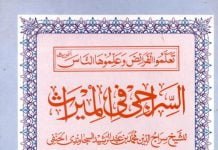 تعلموا الفرائض وعلموها الناس
السراجي في الميراث
للشيخ سراج الدين محمد بن عبد الرشيد السجاوندي الحنفي